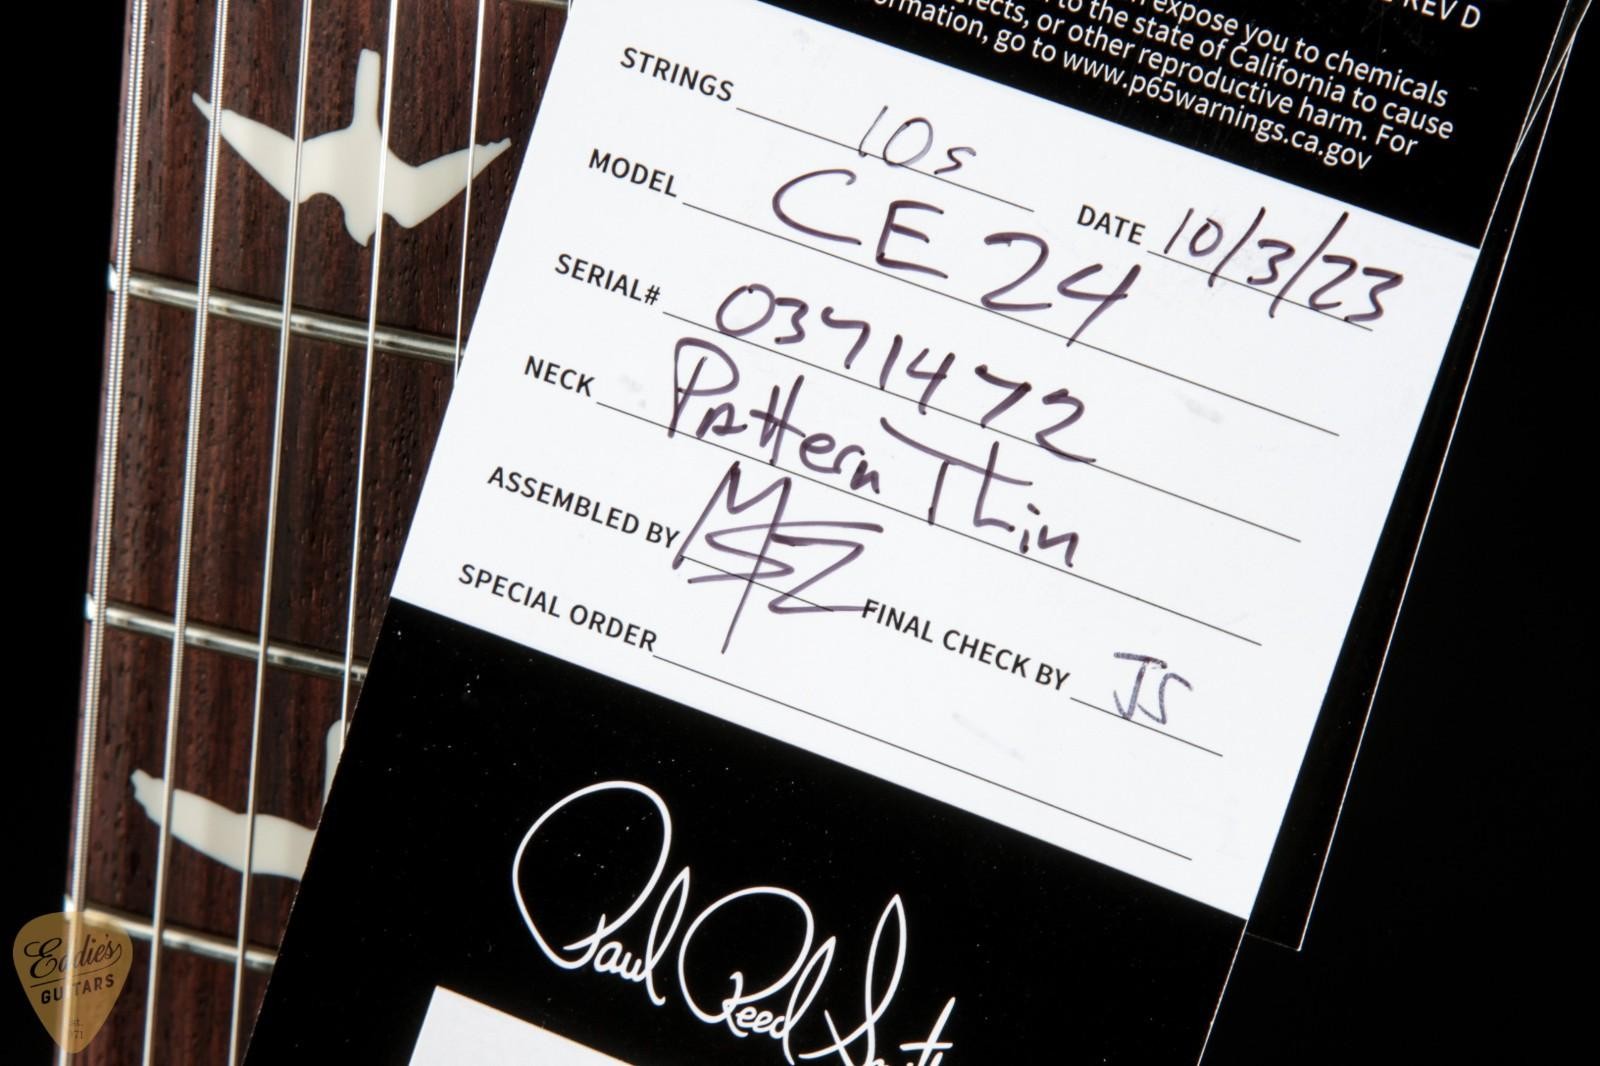 REV D
expose you to chemicals
to the state of California to cause
or other reproductive harm. For
go to www.p65warnings.ca.gov
STRINGS 10s
DATE 10/3/23
MODEL CE 24
SERIAL# 0371472
NECK Pattern Thin
ASSEMBLED BY
FINAL CHECK BY JS
SPECIAL ORDER
Paul Reed Smith
Eddie's
GUITARS